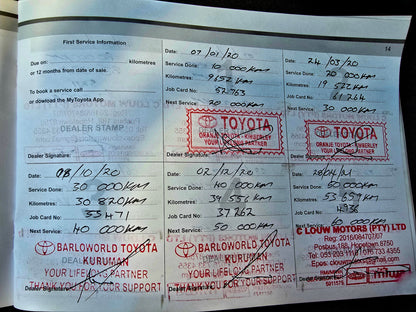 First Service Information
14
Due on: kilometres
or 12 months from date of sale.
To book a service call
or download the MyToyota App
DEALER STAMP
Dealer Signature:
Date: 07/01/20
Service Done: 10 000KM
Kilometres: 9652 KM
Job Card No: 52763
Next Service: 20 000KM
TOYOTA
ORANJE TOYOTA - KIMBERLEY
YOUR LIFELONG PARTNER
Dealer Signature:
Date: 24/03/20
Service Done: 20 000KM
Kilometres: 19 522KM
Job Card No: 61264
Next Service: 30 000KM
TOYOTA
ORANJE TOYOTA - KIMBERLEY
YOUR LIFELONG PARTNER
Dealer Signature:
Date: 08/10/20
Service Done: 30 000KM
Kilometres: 30 820KM
Job Card No: 33471
Next Service: 40 000KM
BARLOWORLD TOYOTA
KURUMAN
YOUR LIFELONG PARTNER
THANK YOU FOR YOUR SUPPORT
Dealer Signature:
Date: 02/12/20
Service Done: 40 000KM
Kilometres: 39 556KM
Job Card No: 37262
Next Service: 50 000KM
BARLOWORLD TOYOTA
KURUMAN
YOUR LIFELONG PARTNER
THANK YOU FOR YOUR SUPPORT
Dealer Signature:
Date: 28/04/21
Service Done: 50 000KM
Kilometres: 53 659KM
Job Card No: 4936
Next Service: 60 000KM
C LOUW MOTORS (PTY) LTD
Reg: 2016/084707/07
Posbus 188, Hopetown 8750
Dealer Signature: